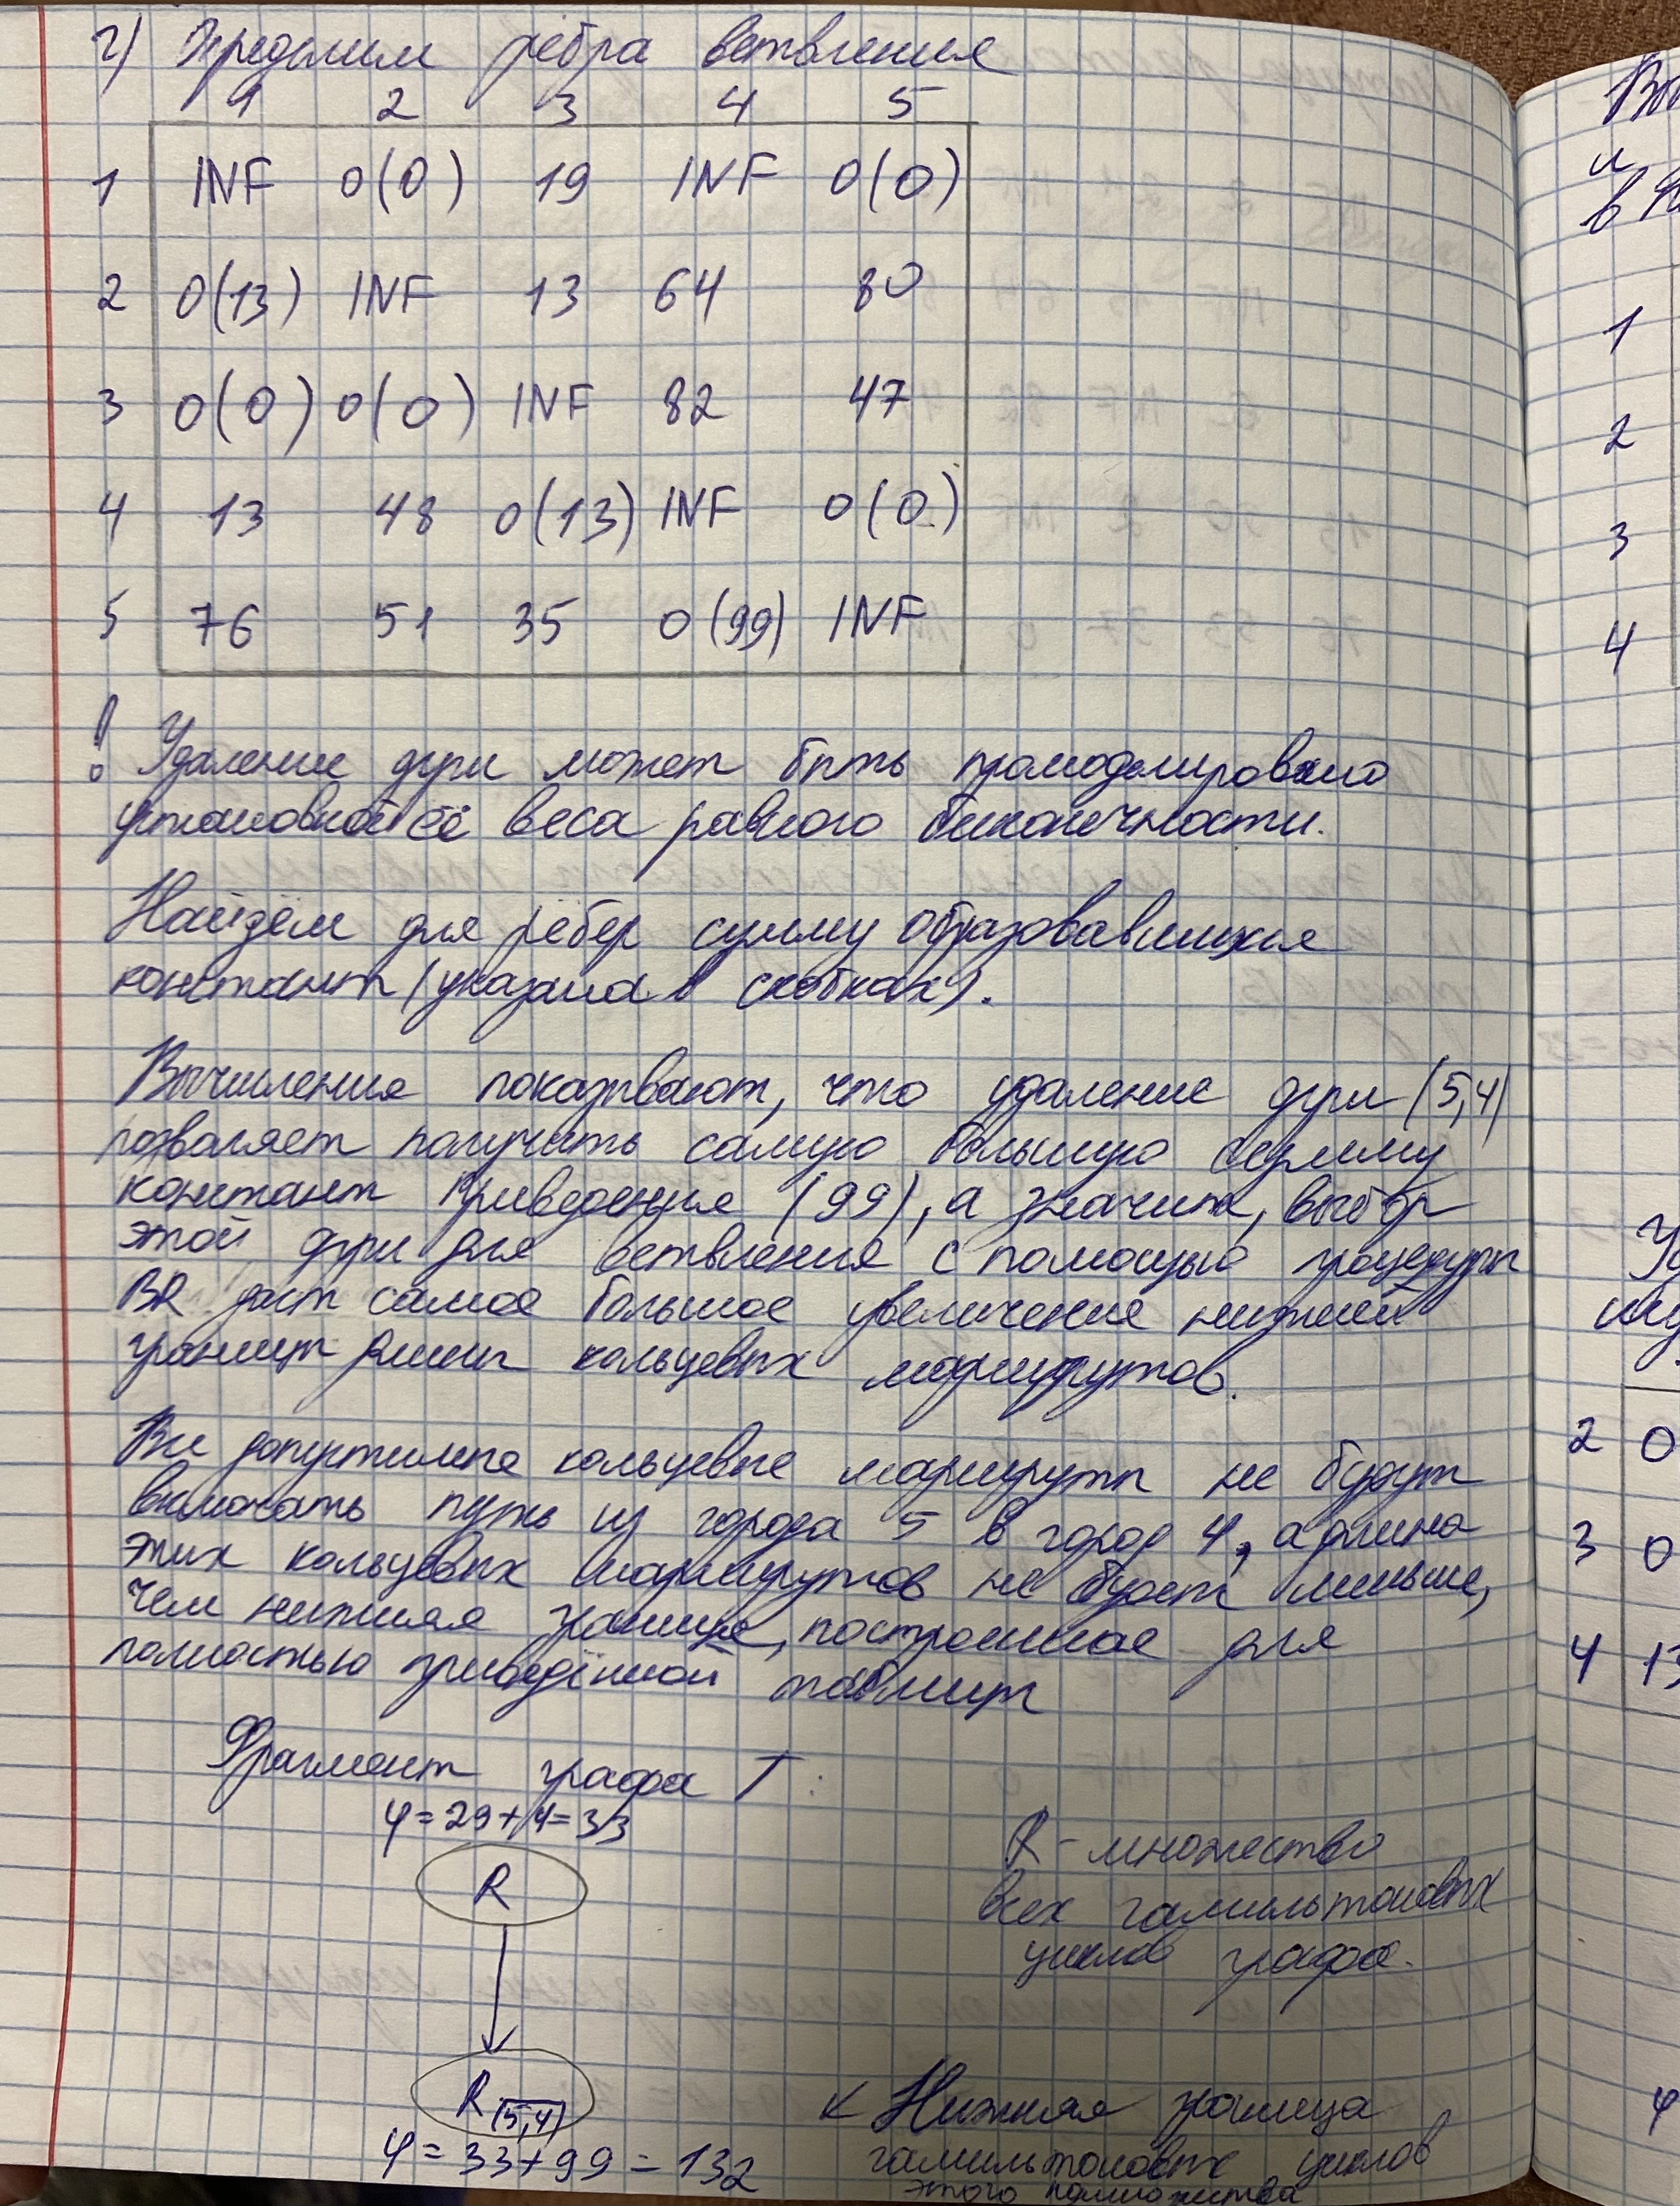 г) Определим рёбра ветвления
1 2 3 4 5
1 INF 0(0) 19 INF 0(0)
2 0(13) INF 13 64 80
3 0(0) 0(0) INF 82 47
4 13 48 0(13) INF 0(0)
5 76 51 35 0(99) INF
! Удаление дуги может быть промоделировано
установкой её веса равного бесконечности.
Найдём для рёбер сумму образовавшихся
констант (указана в скобках).
Вычисления показывают, что удаление дуги (5,4)
позволяет получить самую большую сумму
констант приведения (99), а значит, выбор
этой дуги для ветвления с помощью процедуры
BR даст самое большое увеличение нижней
границы длины кольцевых маршрутов.
Все допустимые кольцевые маршруты не будут
включать путь из города 5 в город 4, а длина
этих кольцевых маршрутов не будет меньше,
чем нижняя граница, построенная для
полностью приведённой таблицы
Фрагмент графа T:
φ=29+4=33
R
R (5,4)
φ = 33+99 = 132
R - множество
всех гамильтоновых
циклов графа.
< Нижняя граница
гамильтоновых циклов
этого подмножества
Вы
и
в
1
2
3
4
2 0
3 0
4 13
φ